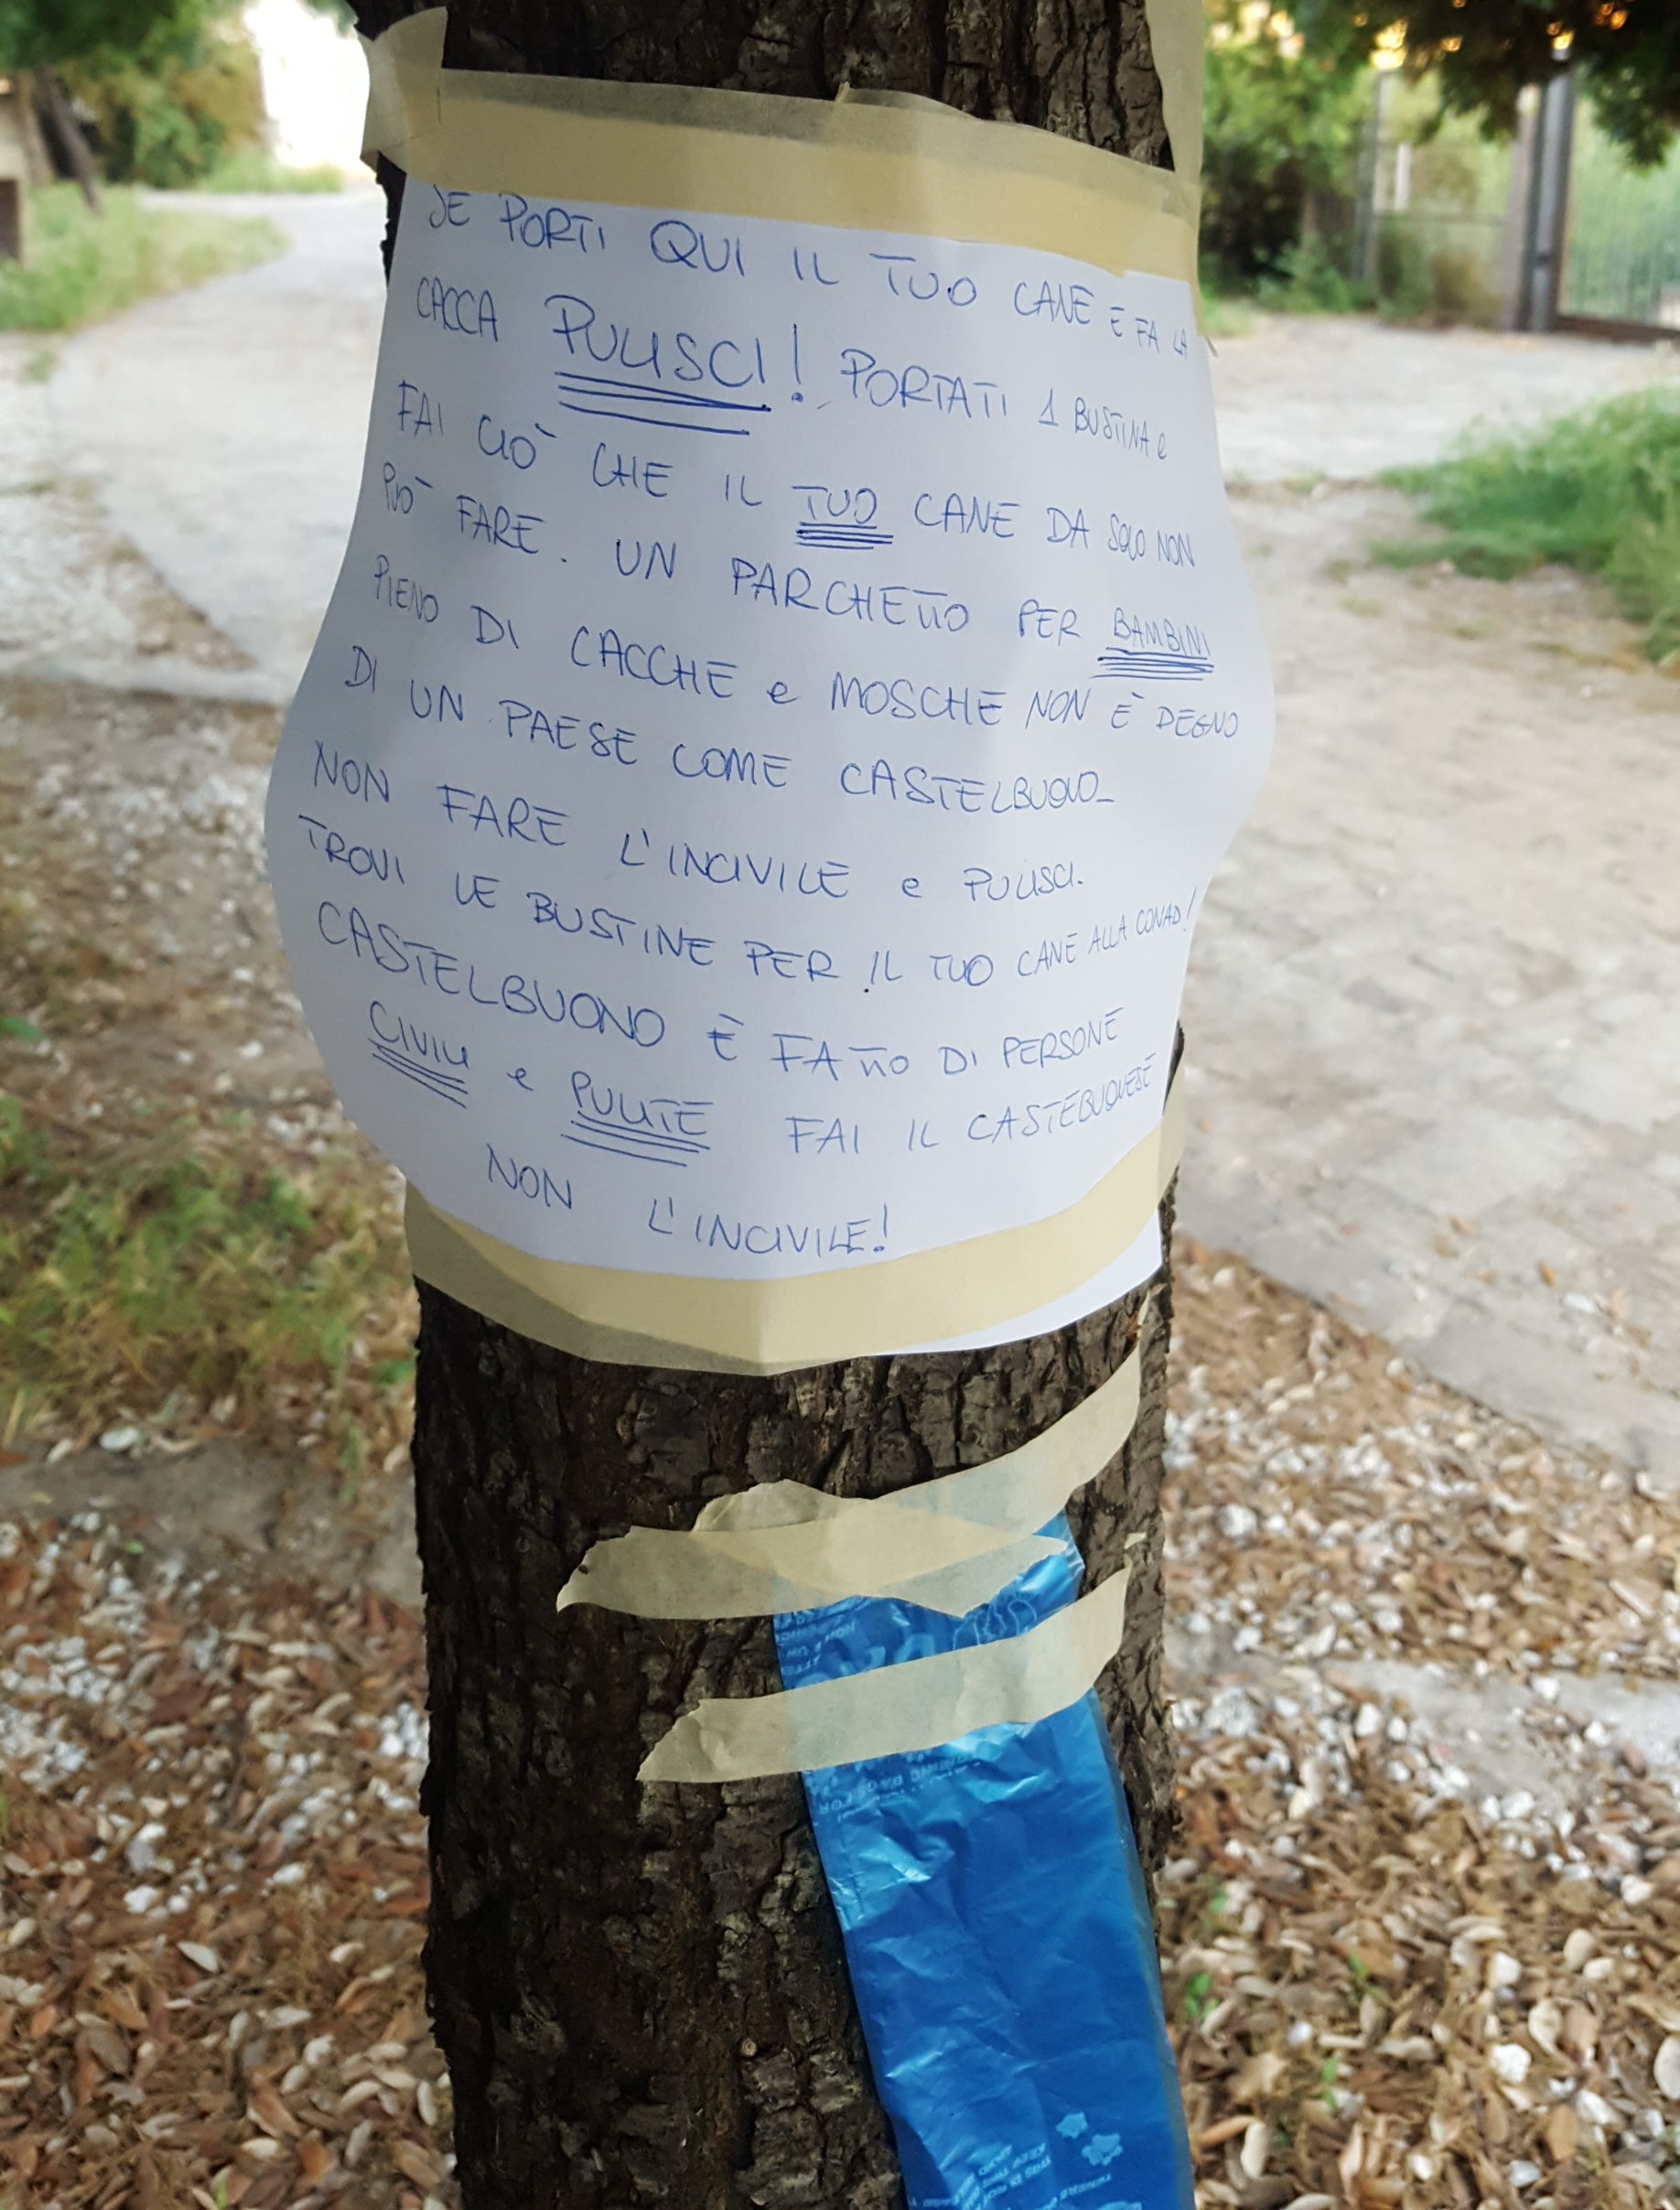 SE PORTI QUI IL TUO CANE E FA LA
CACCA PULISCI! PORTATI 1 BUSTINA e
FAI CIÒ CHE IL TUO CANE DA SOLO NON
PUÒ FARE. UN PARCHETTO PER BAMBINI
PIENO DI CACCHE e MOSCHE NON È DEGNO
DI UN PAESE COME CASTELBUONO_
NON FARE L'INCIVILE e PULISCI.
TROVI LE BUSTINE PER IL TUO CANE ALLA CONAD!
CASTELBUONO È FATTO DI PERSONE
CIVILI e PULITE FAI IL CASTEBUONESE
NON L'INCIVILE!